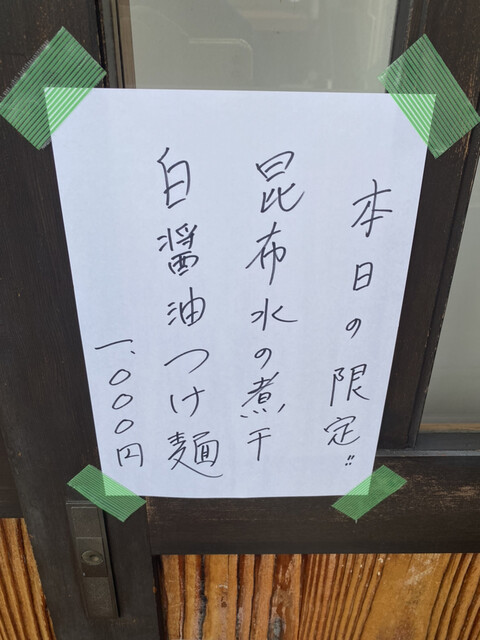 本日の限定!!
昆布水の煮干
白醤油つけ麺
一、〇〇〇円